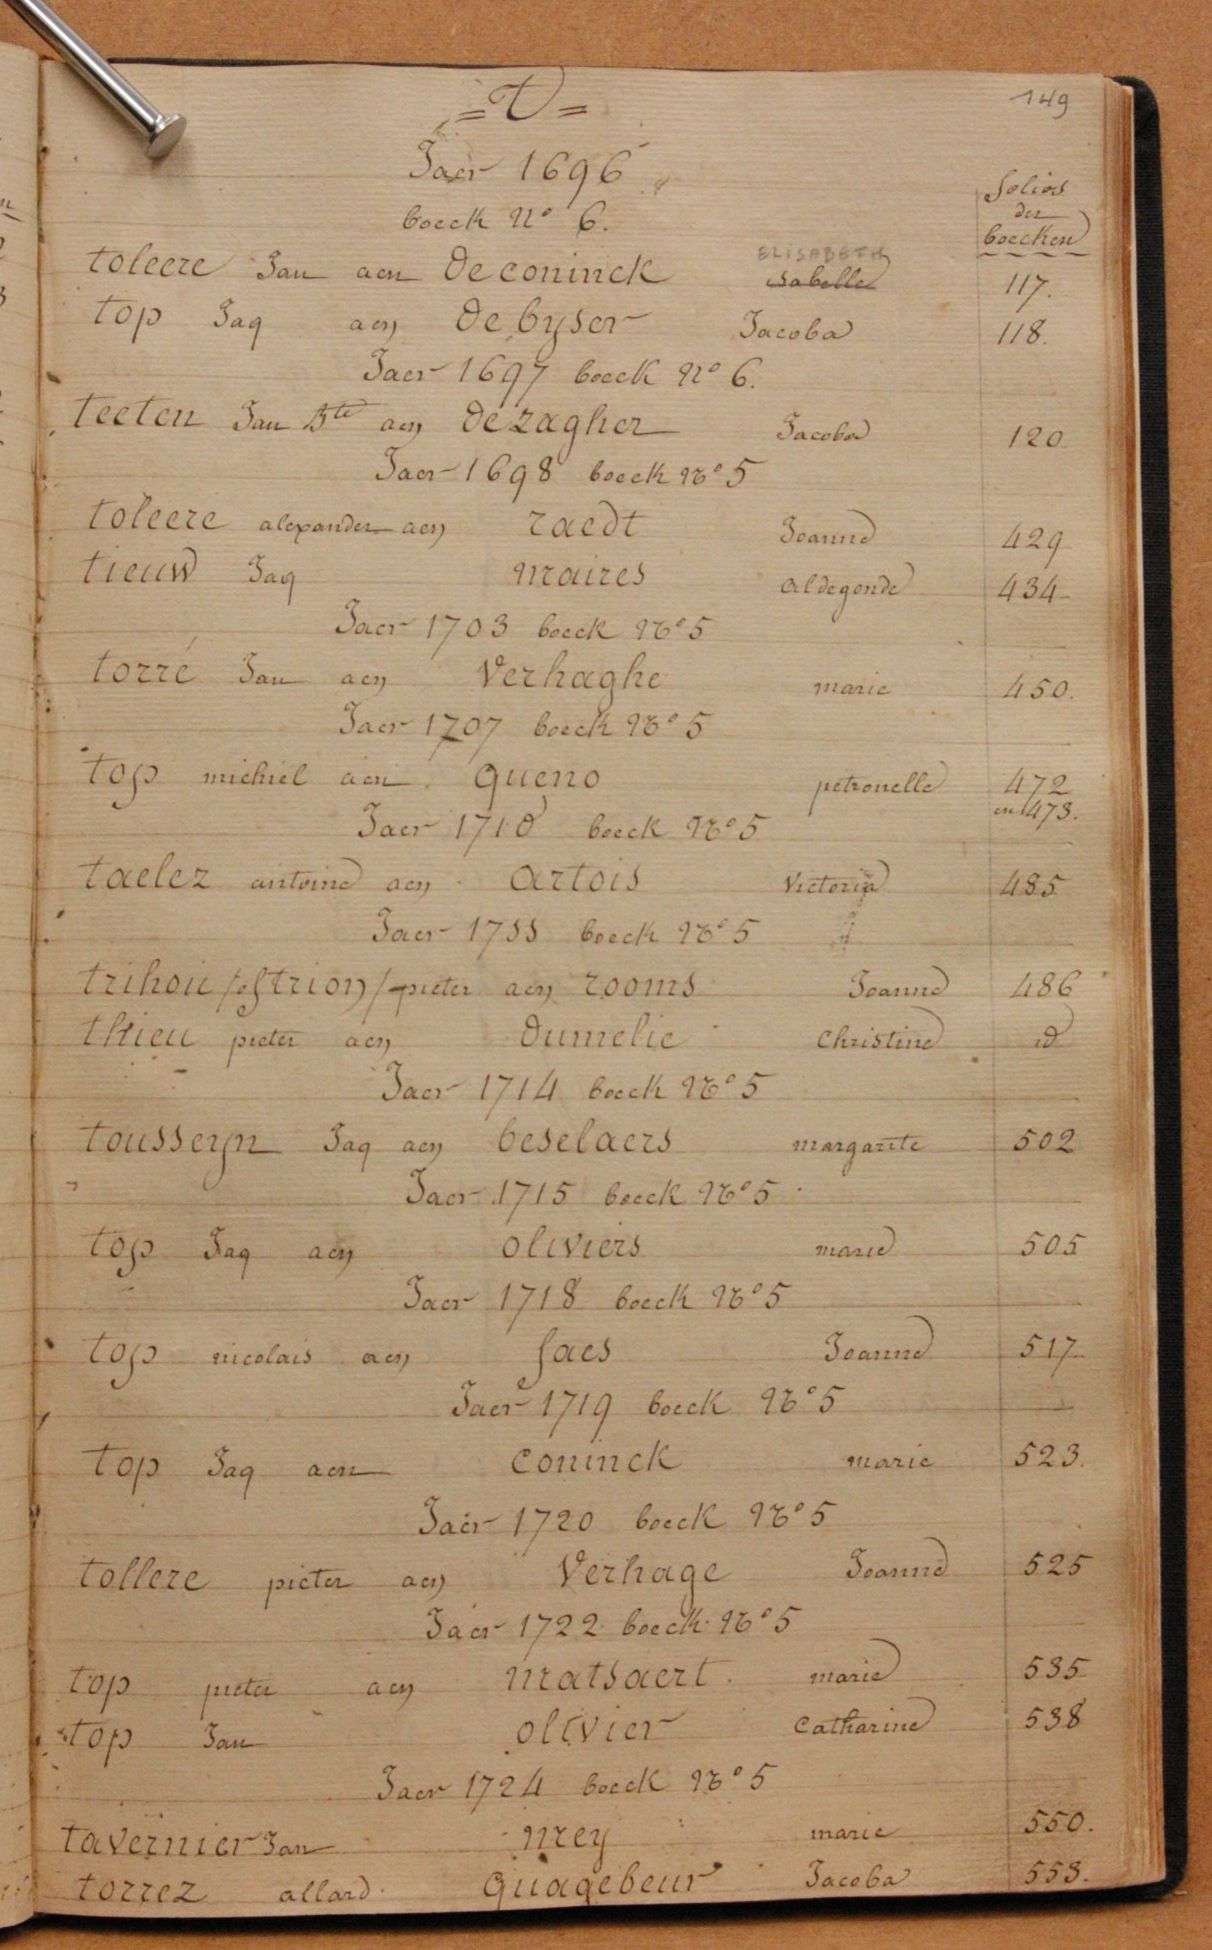 149
= T =
Jaer 1696
folios
der
boecken
boeck No 6.
ELISABETH
toleere Jan aen De coninck isabelle 117.
top Jaq aen De byser Jacoba 118.
Jaer 1697 boeck No 6.
teeten Jan Bte aen De zagher Jacoba 120
Jaer 1698 boeck No 5
toleere alexander aen raedt Joanne 429
tieuw Jaq maires aldegonde 434
Jaer 1703 boeck No 5
torré Jan aen Verhaghe marie 450.
Jaer 1707 boeck No 5
top michiel aen queno petronelle 472
en 473.
Jaer 1710 boeck No 5
taelez antoine aen artois Victoria 485
Jaer 1755 boeck No 5
trihou /of trion/ pieter aen rooms Joanne 486
thieu pieter aen Dumelie Christine id
Jaer 1714 boeck No 5
tousseyn Jaq aen beselaers margarite 502
Jaer 1715 boeck No 5
top Jaq aen oliviers marie 505
Jaer 1718 boeck No 5
top nicolais aen faes Joanne 517
Jaer 1719 boeck No 5
top Jaq aen coninck marie 523.
Jaer 1720 boeck No 5
tollere pieter aen Verhage Joanne 525
Jaer 1722 boeck No 5
top pieter aen matsaert marie 535
top Jan olivier Catharine 538
Jaer 1724 boeck No 5
tavernier Jan mey marie 550.
torrez allard quagebeur Jacoba 553.